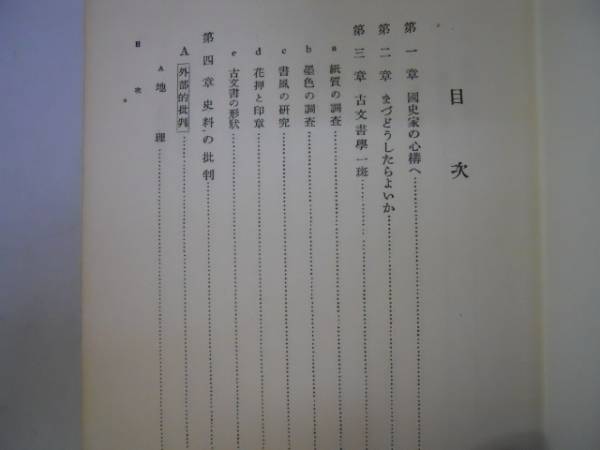 目次
第一章 國史家の心構へ
第二章 まづどうしたらよいか
第三章 古文書學一斑
a 紙質の調査
b 墨色の調査
c 書風の研究
d 花押と印章
e 古文書の形狀
第四章 史料の批判
A 外部的批判
A 地理
目次